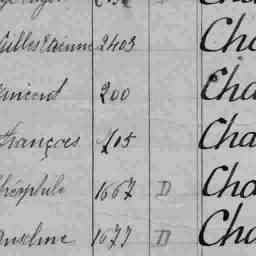 Gilles Etienne 2403 Cha
Vincent 200 Cha
François 205 Cha
Théophile 1667 D Cha
Anselme 1677 D Cha